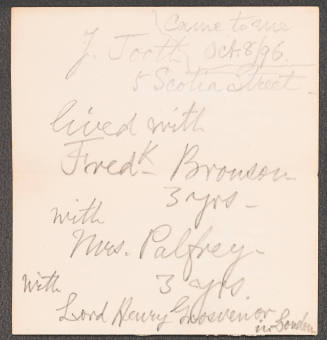 Came to me
J. Tooth Oct. 8/96.
5 Scotia Street
lived with
Fredk Bronson
3 yrs.
with
Mrs. Palfrey
with 3 yrs.
Lord Henry Grosvenor
in London